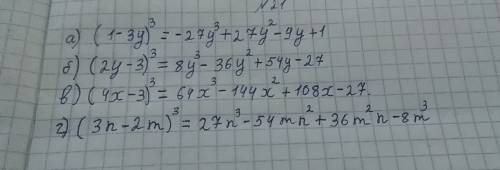 №21
а) (1-3y)³ = -27y³+27y²-9y+1
б) (2y-3)³ = 8y³-36y²+54y-27
в) (4x-3)³ = 64x³-144x²+108x-27.
г) (3n-2m)³ = 27n³-54mn²+36m²n-8m³